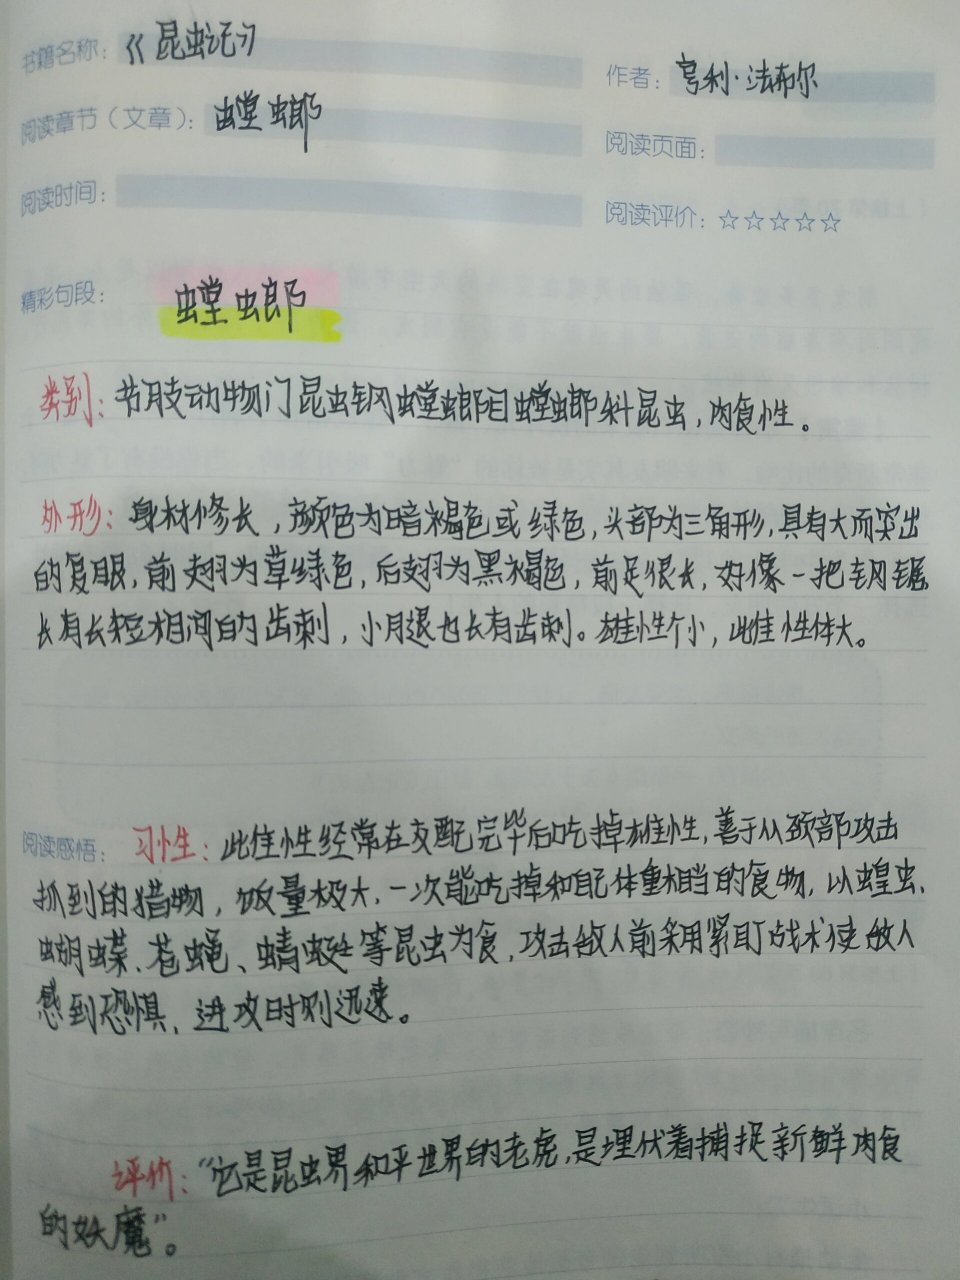 书籍名称：《昆虫记》
作者：亨利·法布尔
阅读章节（文章）：螳螂
阅读页面：
阅读时间：
阅读评价：☆☆☆☆☆
精彩句段：螳螂
类别：节肢动物门昆虫钢螳螂目螳螂科昆虫，肉食性。
外形：身材修长，颜色为暗褐色或绿色，头部为三角形，具有大而突出
的复眼，前翅为草绿色，后翅为黑褐色，前足很长，好像一把钢锯
长有长短相间的齿刺，小月退也长有齿刺。雄性个小，雌性体大。
阅读感悟：习性：雌性经常在交配完毕后吃掉雄性，善于从颈部攻击
抓到的猎物，饭量极大，一次能吃掉和自己体重相当的食物，以蝗虫、
蝴蝶、苍蝇、蜻蜓等昆虫为食，攻击敌人前采用紧盯战术使敌人
感到恐惧，进攻时则迅速。
评价：“它是昆虫界和平世界的老虎，是埋伏着捕捉新鲜肉食
的妖魔”。